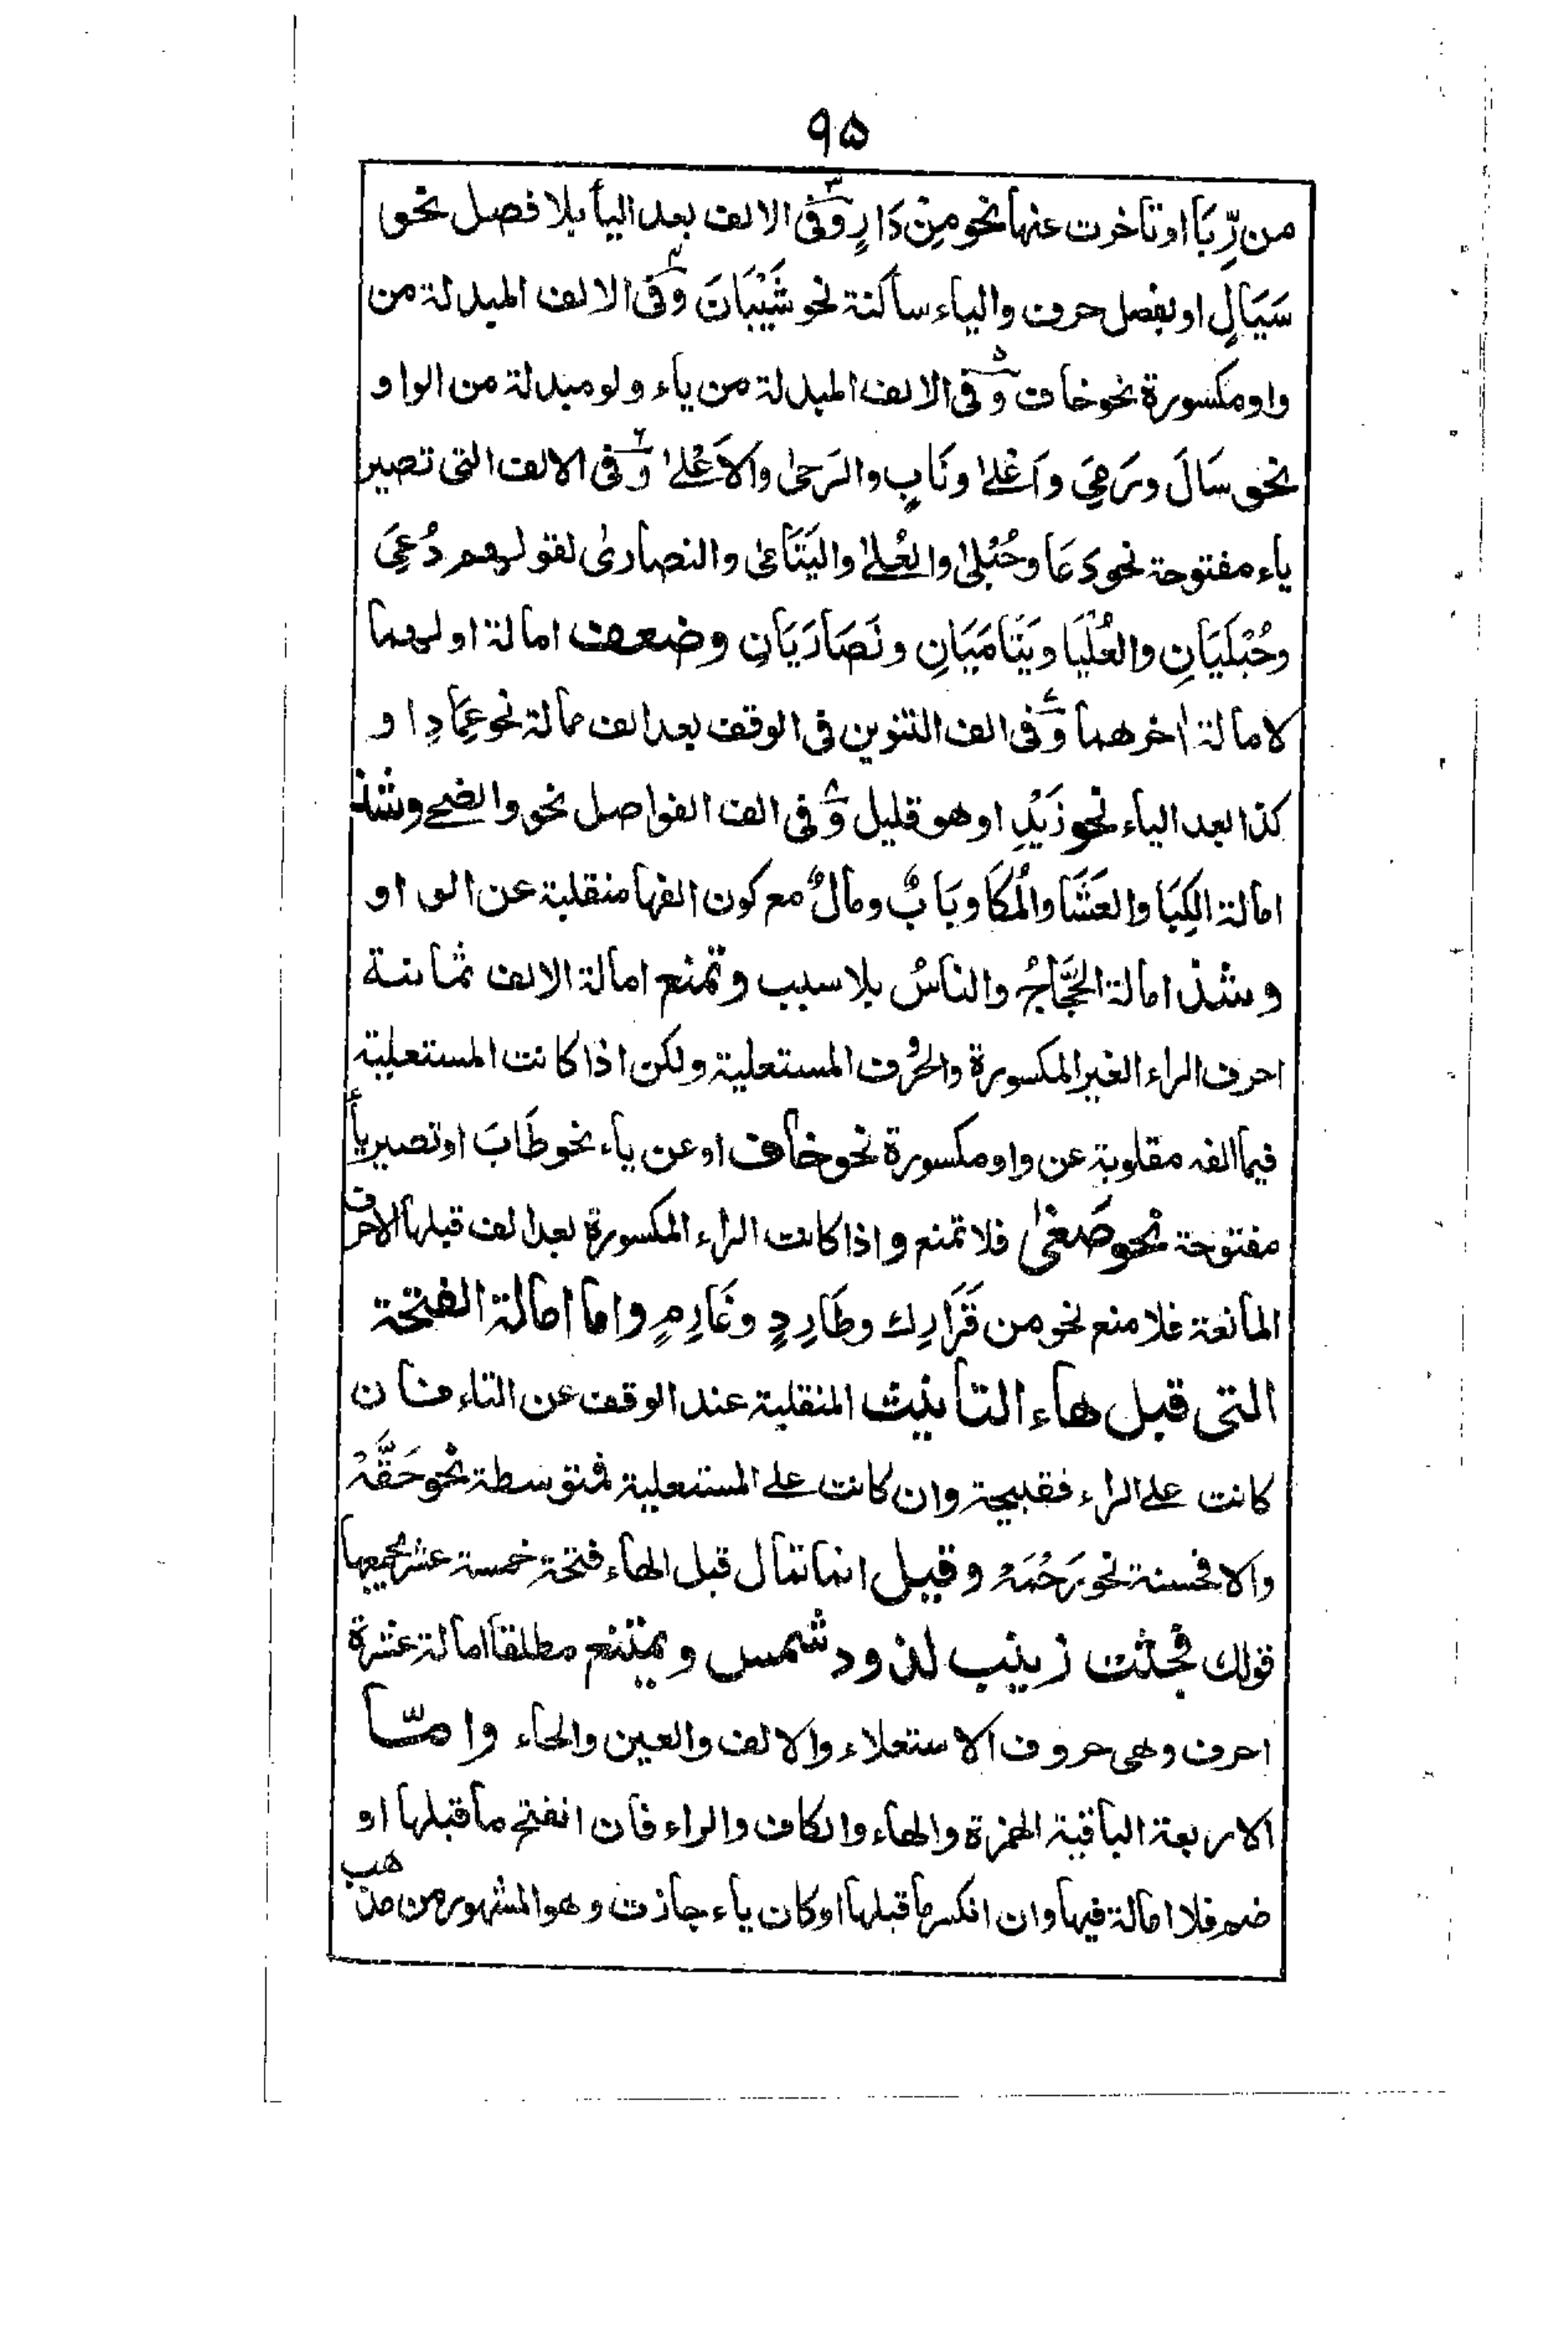 ۹۵
من رِّبَا او تاخرت عنها نحو مِنْ دَارٍ وَّفی الالف بعد الیأ بلا فصل نحو
سَیَالٍ او بفصل حرف والیاء ساکنة نحو شَیْبَانَ وَّفی الالف المبدلة من
واو مکسورة نحو خاف وَّفی الالف المبدلة من یاء ولو مبدلة من الواو
نحو سَالَ ورَمٰی وَاَعْلیٰ ونَابٍ والرَحیٰ والاَعْلیٰ وَّفی الالف التی تصیر
یاء مفتوحة نحو دَعَا وحُبْلیٰ والعُلیٰ والیَتَامیٰ والنصاریٰ لقولهم دُعِیَ
وحُبْلَیَانِ والعُلْیَا ویَتَامَیَانِ ونَصَارَیَانِ وضعف امالة اولهما
لامالة اخرهما وَّفی الف التنوین فی الوقف بعد الف ممالة نحو عِمَادِا و
کذا بعد الیاء نحو زَیْدِا وهو قلیل وَّفی الف الفواصل نحو والضحے وشذ
امالة الکِبَا والعَشَا والمُکَا وبَابٌ ومالٌ مع کون الفها منقلبة عن الواو
وشذ امالة الحَّجَاجُ والناسُ بلا سبب وتمنع امالة الالف ثمانیة
احرف الراء الغیر المکسورة والحُرُوف المستعلیة ولکن اذا کانت المستعلیة
فیما الفه مقلوبة عن واو مکسورة نحو خاف او عن یاء نحو طَابَ او تصیر یأ
مفتوحة نحو صَغیٰ فلا تمنع واذا کانت الراء المکسورة بعد الف قبلها الاحرف
المانعة فلا منع نحو من قَرَارِك وطَارِدٍ وغَارِمٍ واما امالة الفتحة
التی قبل هاء التأنیث المنقلبة عند الوقف عن التاء فان
کانت علی الراء فقبیحة وان کانت علی المستعلیة فمتوسطة نحو حَقَّہْ
والا فحسنة نحو رَحْمَہْ وقیل انما تمال قبل الهاء فتحة خمسة عشر یجمعها
قولك فجثت زینب لذود شمس ویمتنع مطلقا امالة عشرة
احرف وهی حروف الاستعلاء والالف والعین والحاء وامّا
الاربعة الباقیة الهمزة والهاء والکاف والراء فان انفتح ما قبلها او
ضم فلا امالة فیها وان انکسر ما قبلها او کان یاء جازت وهو المشهور من مذهب